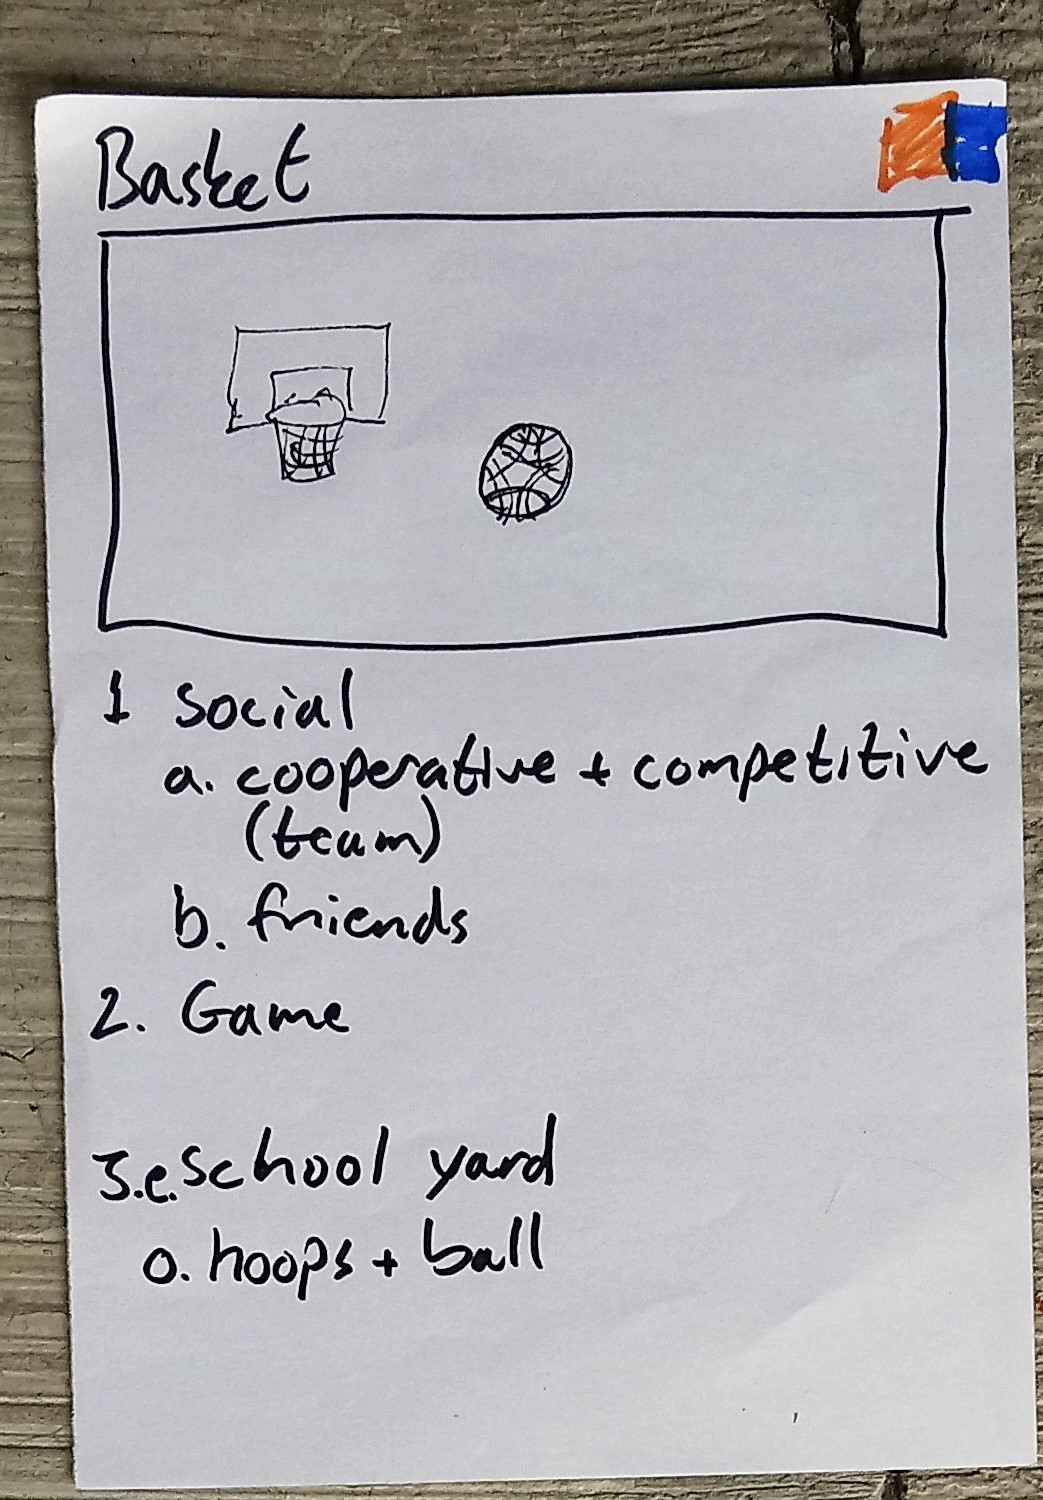 Basket
1 social
a. cooperative + competitive
(team)
b. friends
2. Game
3.e. school yard
o. hoops + ball